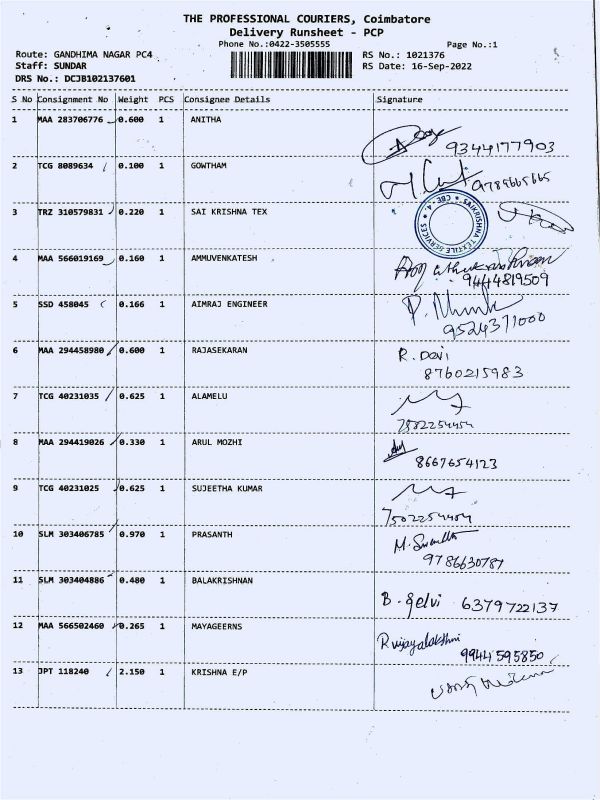 THE PROFESSIONAL COURIERS, Coimbatore
Delivery Runsheet - PCP
Phone No.:0422-3505555 Page No.:1
Route: GANDHIMA NAGAR PC4 RS No.: 1021376
Staff: SUNDAR RS Date: 16-Sep-2022
DRS No.: DCJB102137601
S No Consignment No Weight PCS Consignee Details Signature
1 MAA 283706776 0.600 1 ANITHA
9344177903
2 TCG 8089634 0.100 1 GOWTHAM
9789665665
3 TRZ 310579831 0.220 1 SAI KRISHNA TEX
SAIKRISHNA TEXTILE SERVICES CBE-4.
4 MAA 566019169 0.160 1 AMMUVENKATESH
9444819509
5 SSD 458045 0.166 1 AIMRAJ ENGINEER
9524371000
6 MAA 294458980 0.600 1 RAJASEKARAN R. Devi
8760215983
7 TCG 40231035 0.625 1 ALAMELU
7502254454
8 MAA 294419026 0.330 1 ARUL MOZHI
8667654123
9 TCG 40231025 0.625 1 SUJEETHA KUMAR
7502254454
10 SLM 303406785 0.970 1 PRASANTH
9786630787
11 SLM 303404886 0.480 1 BALAKRISHNAN
B. Selvi 6379722137
12 MAA 566502460 0.265 1 MAYAGEERNS
R vijayalakshmi
9944595850
13 JPT 118240 2.150 1 KRISHNA E/P